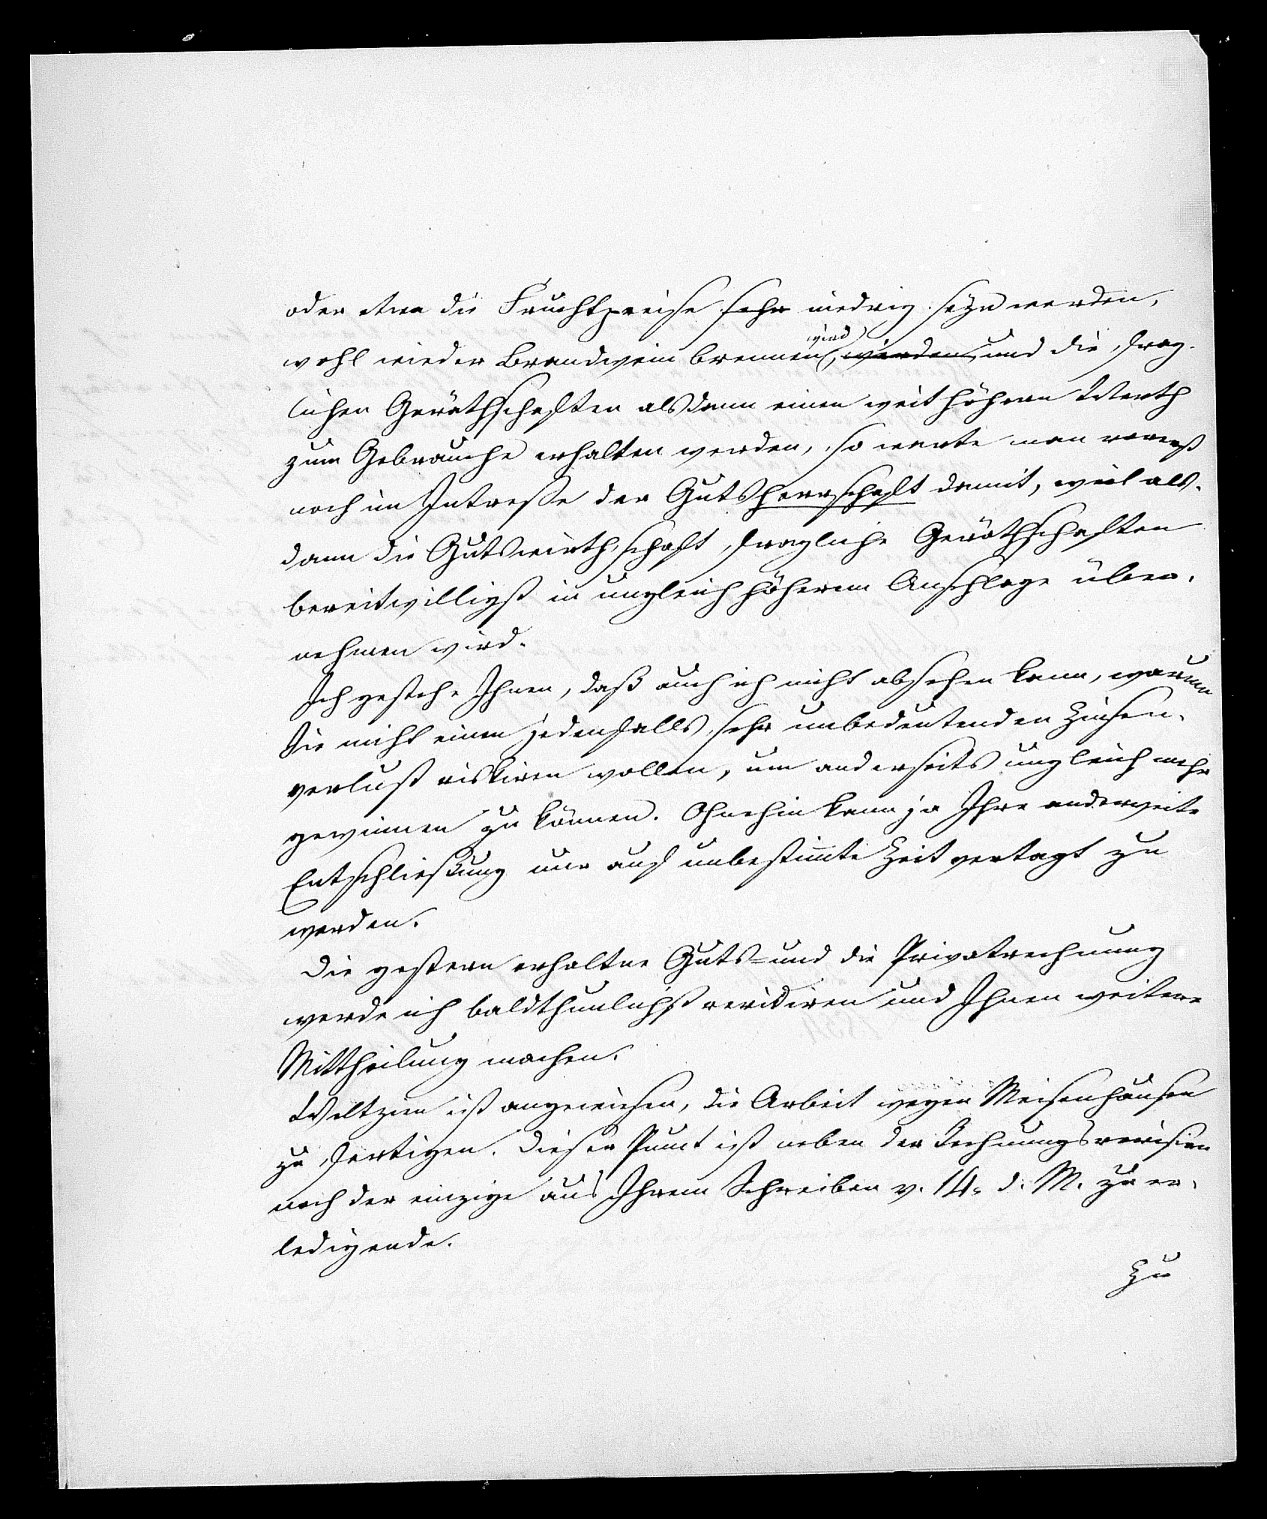 oder etwa die Fruchtpreise sehr niedrig seyn werden,
wohl wieder Brandwein brennen wird, werden, und die frag-
lichen Geräthschaften alsdann einen weit höhern Werth
zum Gebrauche erhalten werden, so warte man vorerst
noch im Intresse der Gutsherrschaft damit, weil als-
dann die Gutswirthschaft fragliche Geräthschaften
bereitwilligst in ungleich höherem Anschlage über-
nehmen wird.
Ich gestehe Ihnen, daß auch ich nicht absehen kann, warum
Sie nicht einen jedenfalls sehr unbedeutenden Zinsen-
verlust riskiren wollen, um anderseits ungleich mehr
gewinnen zu können. Ohnehin kann ja Ihre anderweite
Entschließung nur auf unbestimmte Zeit vertagt zu
werden.
Die gestern erhaltne Guts- und die Privatrechnung
werde ich baldthunlichst revidiren und Ihnen weitere
Mittheilung machen.
Weltzien ist angewiesen, die Arbeit wegen Meisenhausen
zu fertigen. Dieser Punct ist neben der Rechnungsrevision
noch der einzige aus Ihrem Schreiben v. 14. d. M. zu er-
ledigende.
Zu